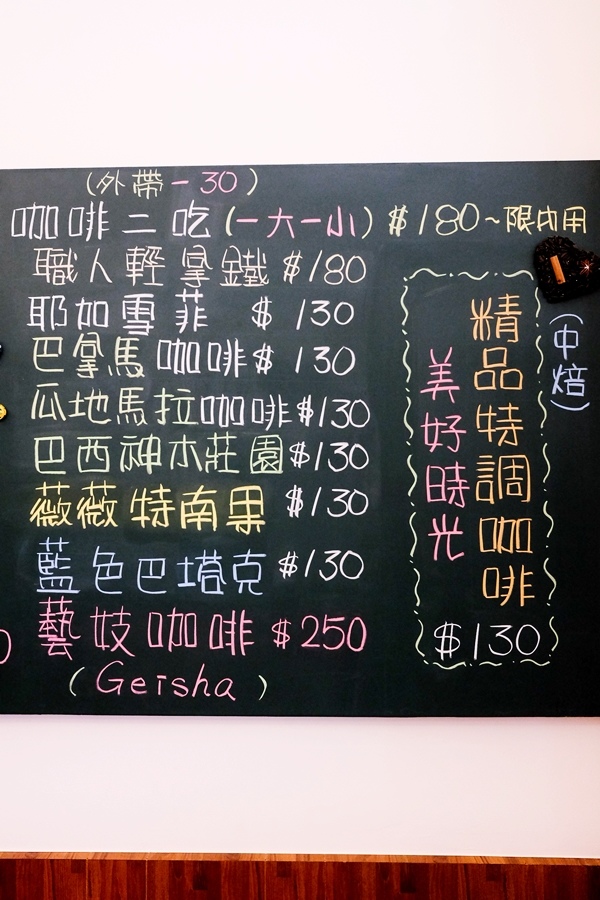 (外帶-30)
咖啡二吃(一大一小) $180~限內用
職人輕拿鐵 $180
耶加雪菲 $ 130
巴拿馬咖啡 $ 130
瓜地馬拉咖啡 $130
巴西神木莊園 $130
薇薇特南果 $130
藍色巴塔克 $130
藝妓咖啡 $250
(Geisha)
(中焙)
精品特調咖啡
美好時光
$130